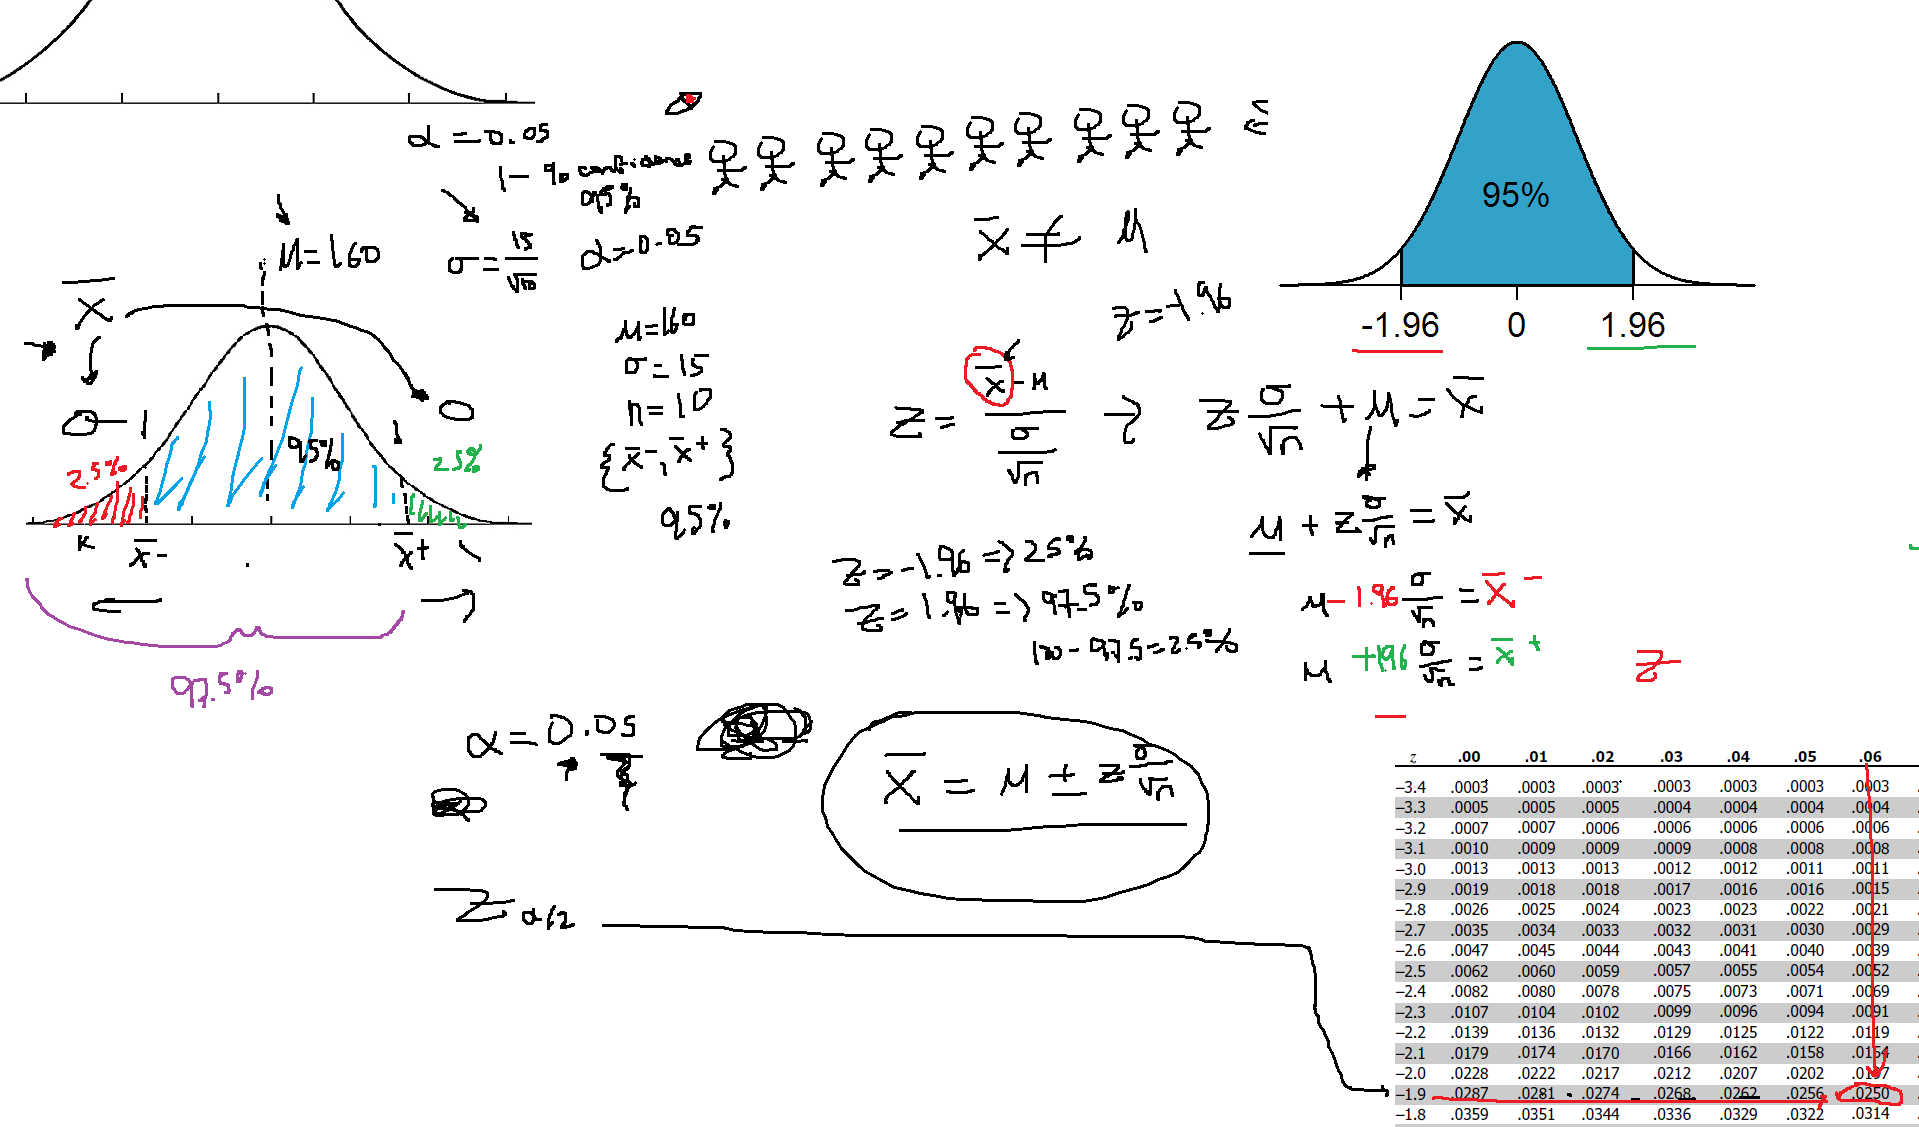 α = 0.05
1 - % confidence
95%
μ = 160
σ = 15/√10
α = 0.05
x̄
2.5%
95%
2.5%
x̄-
x̄+
97.5%
μ = 160
σ = 15
n = 10
{x̄-, x̄+}
95%
x̄ ≠ μ
z = -1.96
z = (x̄ - μ)/(σ/√n) → z σ/√n + μ = x̄
μ + z σ/√n = x̄
μ - 1.96 σ/√n = x̄-
μ + 1.96 σ/√n = x̄+
z
z = -1.96 => 2.5%
z = 1.96 => 97.5%
100 - 97.5 = 2.5%
95%
-1.96 0 1.96
α = 0.05
x̄ = μ ± z σ/√n
z α/2
z .00 .01 .02 .03 .04 .05 .06
−3.4 .0003 .0003 .0003 .0003 .0003 .0003 .0003
−3.3 .0005 .0005 .0005 .0004 .0004 .0004 .0004
−3.2 .0007 .0007 .0006 .0006 .0006 .0006 .0006
−3.1 .0010 .0009 .0009 .0009 .0008 .0008 .0008
−3.0 .0013 .0013 .0013 .0012 .0012 .0011 .0011
−2.9 .0019 .0018 .0018 .0017 .0016 .0016 .0015
−2.8 .0026 .0025 .0024 .0023 .0023 .0022 .0021
−2.7 .0035 .0034 .0033 .0032 .0031 .0030 .0029
−2.6 .0047 .0045 .0044 .0043 .0041 .0040 .0039
−2.5 .0062 .0060 .0059 .0057 .0055 .0054 .0052
−2.4 .0082 .0080 .0078 .0075 .0073 .0071 .0069
−2.3 .0107 .0104 .0102 .0099 .0096 .0094 .0091
−2.2 .0139 .0136 .0132 .0129 .0125 .0122 .0119
−2.1 .0179 .0174 .0170 .0166 .0162 .0158 .0154
−2.0 .0228 .0222 .0217 .0212 .0207 .0202 .0197
−1.9 .0287 .0281 .0274 .0268 .0262 .0256 .0250
−1.8 .0359 .0351 .0344 .0336 .0329 .0322 .0314